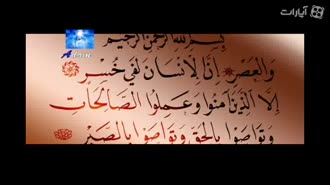 آپارات
بِسْمِ اللّٰهِ الرَّحْمٰنِ الرَّحِيْمِ
وَالْعَصْرِ إِنَّ الْإِنْسَانَ لَفِي خُسْرٍ
إِلَّا الَّذِينَ آمَنُوا وَعَمِلُوا الصَّالِحَاتِ
وَتَوَاصَوْا بِالْحَقِّ وَتَوَاصَوْا بِالصَّبْرِ